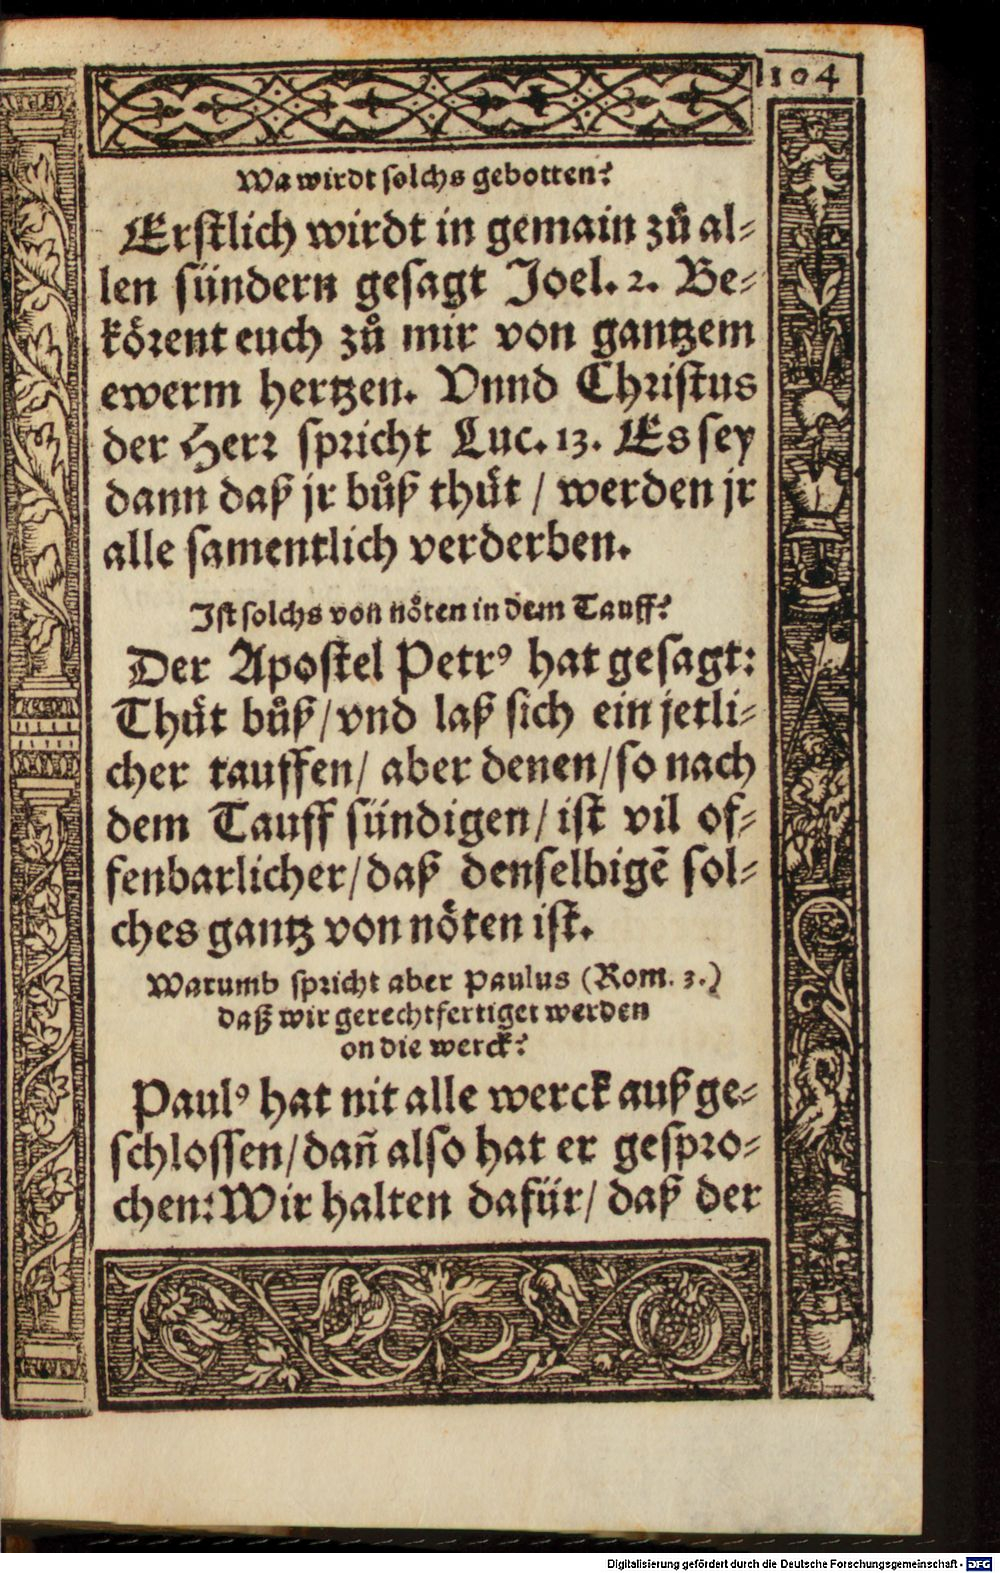 104
Wa wirdt solchs gebotten?
Erstlich wirdt in gemain zů al-
len sündern gesagt Joel. 2. Be-
körent euch zů mir von gantzem
ewerm hertzen. Vnnd Christus
der Herr spricht Luc. 13. Es sey
dann daß jr bůß thüt / werden jr
alle samentlich verderben.
Ist solchs von nöten in dem Tauff?
Der Apostel Petrꝰ hat gesagt:
Thüt bůß / vnd laß sich ein jetli-
cher tauffen / aber denen / so nach
dem Tauff sündigen / ist vil of-
fenbarlicher / daß denselbigē sol-
ches gantz von nöten ist.
Warumb spricht aber Paulus (Rom. 3.)
daß wir gerechtfertiget werden
on die werck?
Paulꝰ hat nit alle werck außge-
schlossen / dañ also hat er gespro-
chen: Wir halten dafür / daß der
Digitalisierung gefördert durch die Deutsche Forschungsgemeinschaft - DFG